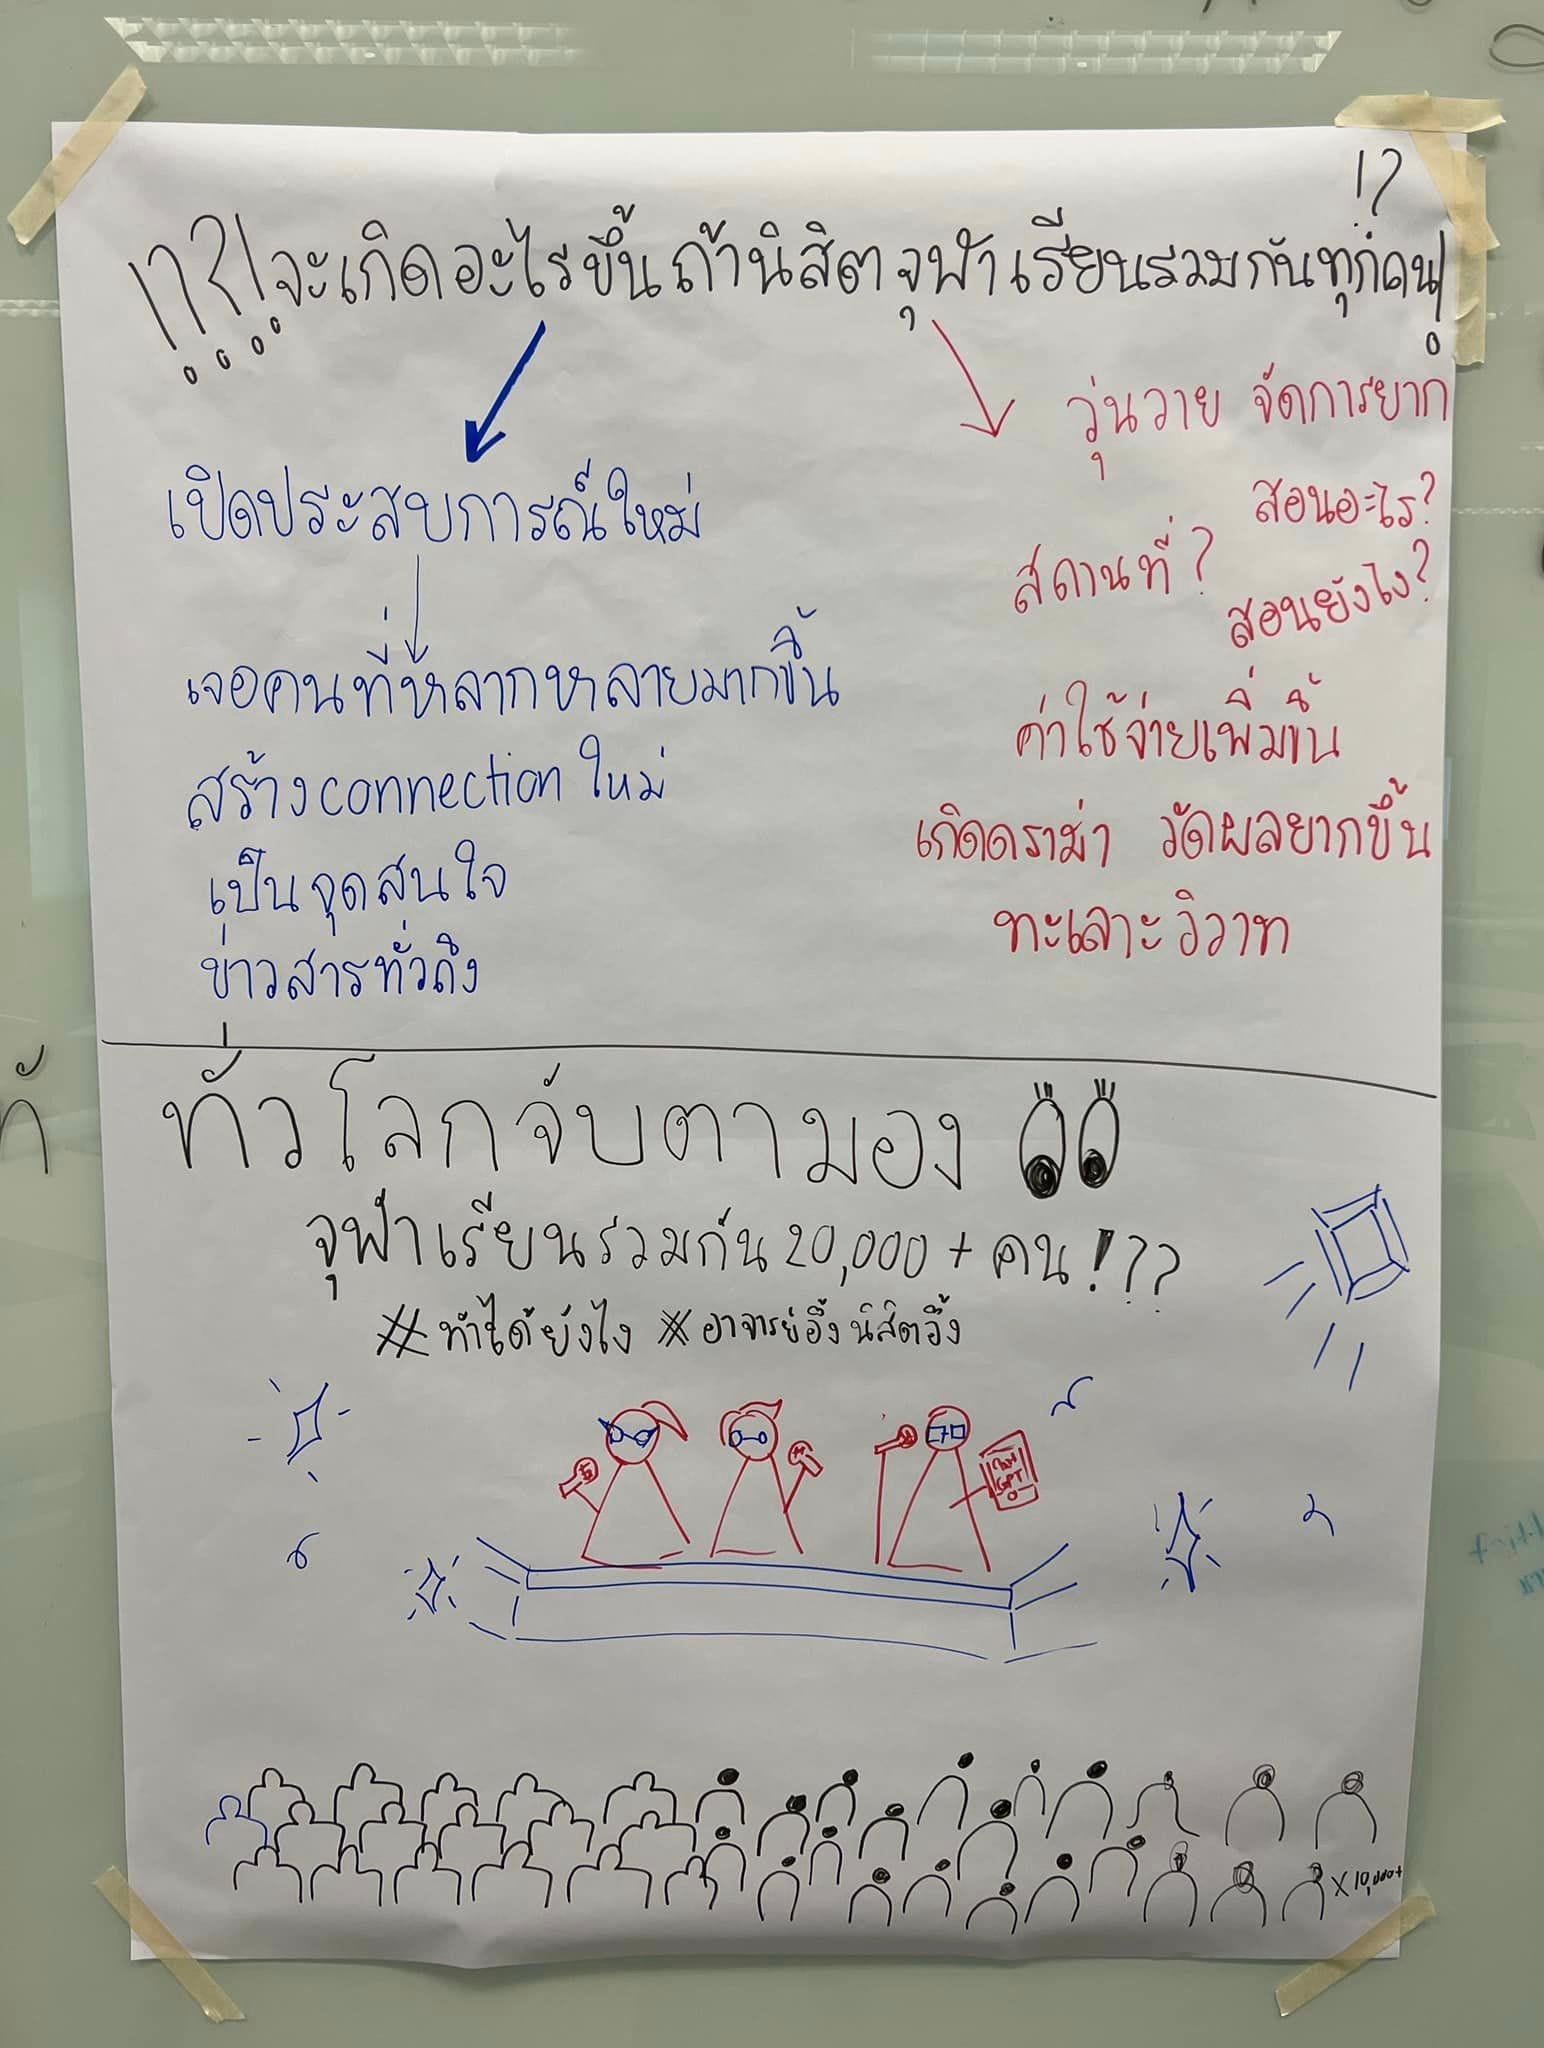 !?
!?!? จะเกิดอะไรขึ้นถ้านิสิตจุฬาเรียนรวมกันทุกคน!
เปิดประสบการณ์ใหม่
เจอคนที่หลากหลายมากขึ้น
สร้างconnectionใหม่
เป็นจุดสนใจ
ข่าวสารทั่วถึง
วุ่นวาย จัดการยาก
สอนอะไร?
สถานที่?
สอนยังไง?
ค่าใช้จ่ายเพิ่มขึ้น
เกิดดราม่า วัดผลยากขึ้น
ทะเลาะวิวาท
ทั่วโลกจับตามอง
จุฬาเรียนรวมกัน 20,000+ คน!??
#ทำได้ยังไง #อาจารย์อึ้งนิสิตอึ้ง
GPT
x10,000+